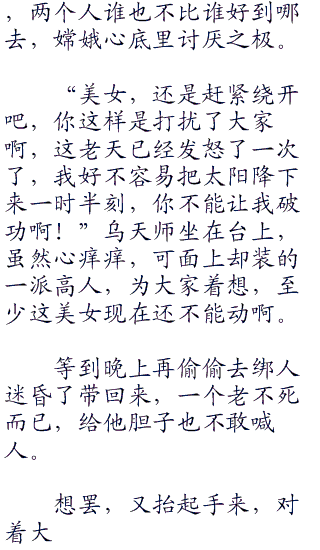 ，两个人谁也不比谁好到哪
去，嫦娥心底里讨厌之极。
“美女，还是赶紧绕开
吧，你这样是打扰了大家
啊，这老天已经发怒了一次
了，我好不容易把太阳降下
来一时半刻，你不能让我破
功啊！”乌天师坐在台上，
虽然心痒痒，可面上却装的
一派高人，为大家着想，至
少这美女现在还不能动啊。
等到晚上再偷偷去绑人
迷昏了带回来，一个老不死
而已，给他胆子也不敢喊
人。
想罢，又抬起手来，对
着大